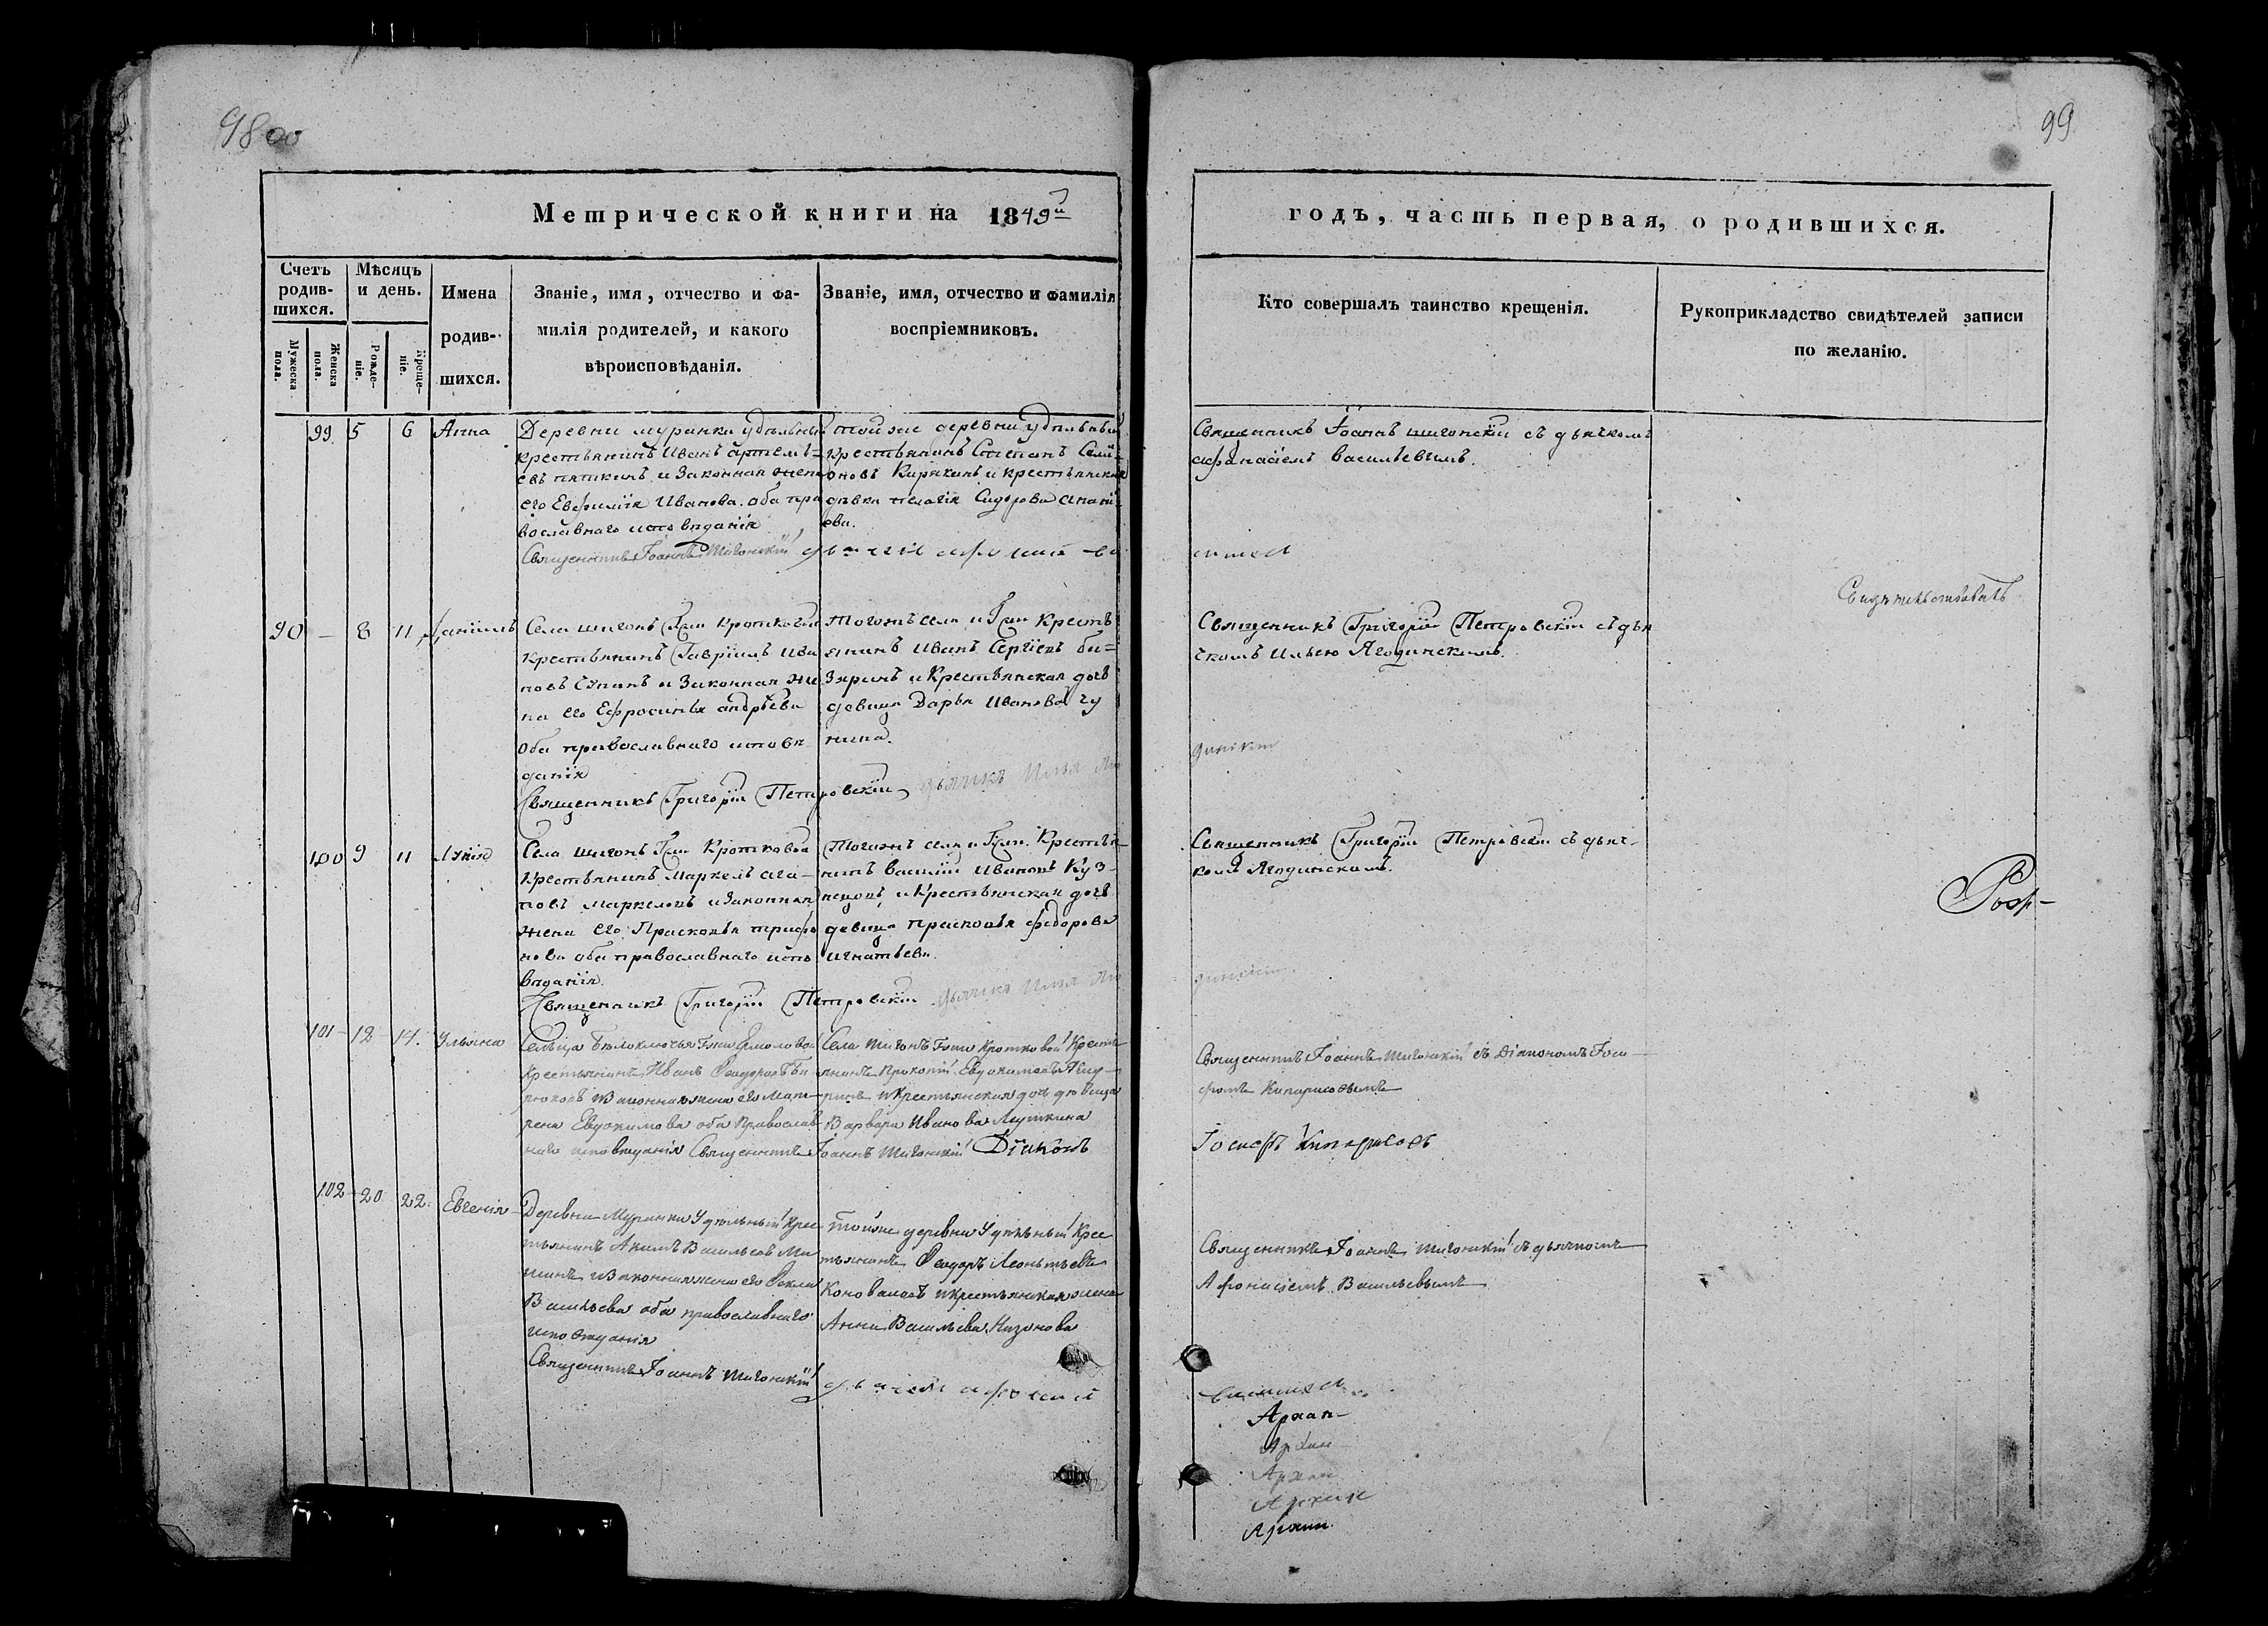 98 об
99
Метрической книги на 1849й
годъ, часть первая, о родившихся.
Счетъ родив-шихся.
Мужеска пола.
Женска пола.
Мѣсяцъ и день.
Рожде-ніе.
Креще-ніе.
Имена
родив-
шихся.
Званіе, имя, отчество и фа-
милія родителей, и какого
вѣроисповѣданія.
Званіе, имя, отчество и фамилія
воспріемниковъ.
Кто совершалъ таинство крещенія.
Рукоприкладство свидѣтелей записи
по желанію.
99. 5 6 Анна
Деревни муранки удѣльный
крестьянинъ Иванъ артемь=
евъ пяткинъ и Законная жена
его Евфимія Иванова. оба пра
вославнаго исповѣданія
Священникъ Іоаннъ Шигонскій
той же деревни удѣльный
крестьянинъ Степанъ Семі-
оновъ Кирякинъ и крестьянская
дѣвка пелагія Сидорова анані-
ева.
дьячекъ афонасій ва
Священникъ Іоаннъ шигонскій съ дьячкомъ
афанасіемъ васильевымъ.
90 — 8 11 Даніилъ
Села шигонъ Гжи Кротковой
крестьянинъ Гавріилъ Ива
новъ и Законная же
на его Ефросинья андрѣева
оба православнаго исповѣ
данія
Священникъ Григорій Петровскій
Тогожъ села и Гжи Кресть
янинъ Иванъ Сергіевъ ба=
Зяринъ и Крестьянская дочь
девица Дарья Иванова чу
нина.
дьячикъ Илья Яго
Священникъ Григорій Петровскій съ дья
чкомъ Ильею Ягодинскимъ.
Свидѣтельствовалъ
динскій
100 9 11 Лукія
Села шигонъ Гжи Кротковой
Крестьянинъ Маркелъ ага-
повъ маркеловъ и Законная
жена его Прасковья трифо
нова оба православнаго испо
вѣданія.
Священникъ Григорій Петровскій
Тогожъ села и Гжи. Крестья-
нинъ василій Ивановъ Куз-
нецовъ, и Крестьянская дочь
девица прасковья федорова
игнатьева.
дьячикъ Илья Яго
Священникъ Григорій Петровскій съ дьяч-
комъ Ягодинскимъ.
динскій.
101 12 14. Ульяна
Сельца Бѣлоключья Гжи Ермоловой
Крестьянинъ Иванъ Феодоровъ Би
рюковъ и Законная жена его Мат-
рена Евдокимова оба Православ-
наго исповѣданія Священникъ Іоаннъ Шигонскій Діаконъ
Села Шигонъ Гжи Кротковой Кресть
янинъ Прокопій Евдокимовъ
и Крестьянская дочь дѣвица
Варвара Иванова Ляткина
Священникъ Іоаннъ Шигонскій съ Діакономъ Іоси
фомъ Кипарисовымъ
Іосифъ Кипарисовъ
102 20 22. Евгенія
Деревни Муранки Удѣльный Крес
тьянинъ Акимъ Васильевъ Ми
шинъ и Законная жена его Фекла
Васильева оба православнаго
исповѣданія
Священникъ Іоаннъ Шигонскій
Тойже деревни Удѣльный Крес
тьянинъ Феодоръ Леонтьевъ
Коноваловъ и крестьянская жена
Анна Васильева Казакова
дьячекъ афонасій
Священникъ Іоаннъ Шигонскій съ дьячкомъ
Афонасіемъ Васильевымъ
Архип
Архип
Архип
Архип
Архип